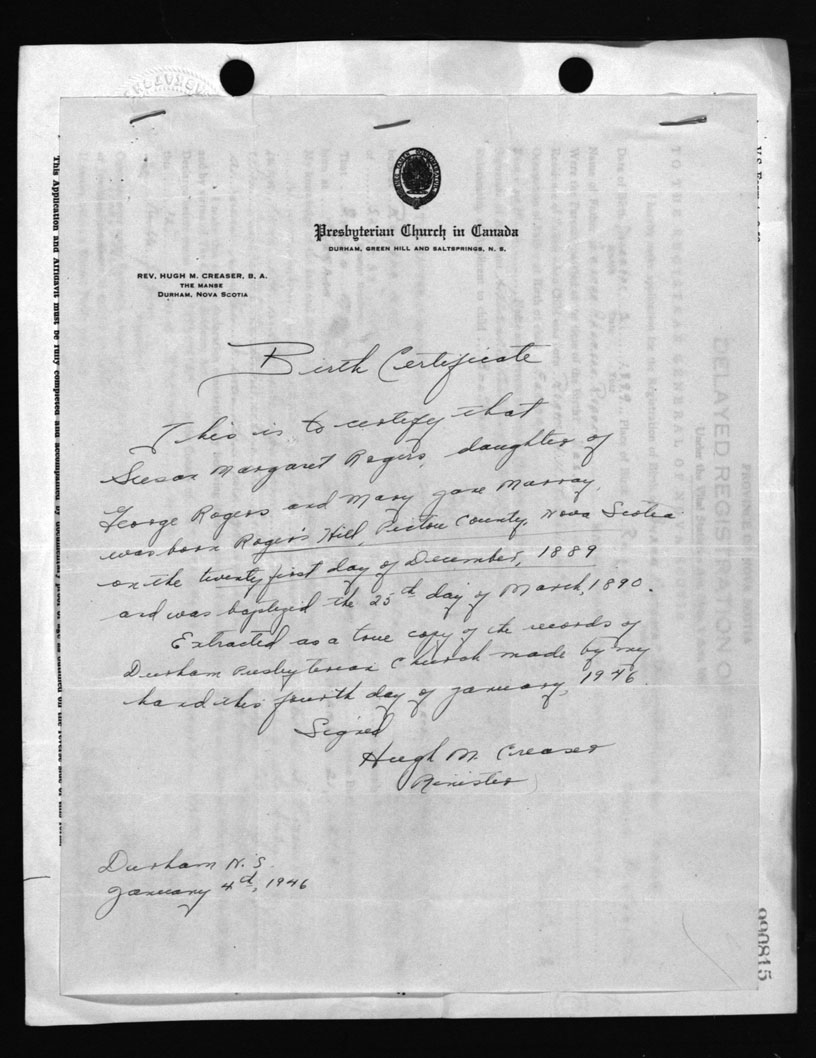 Presbyterian Church in Canada
DURHAM, GREEN HILL AND SALTSPRINGS, N. S.
REV. HUGH M. CREASER, B. A.
THE MANSE
DURHAM, NOVA SCOTIA
Birth Certificate
This is to certify that
Susan Margaret Rogers, daughter of
George Rogers and Mary Jane Murray,
was born Roger's Hill, Pictou County, Nova Scotia
on the twenty first day of December, 1889
and was baptized the 25th day of March, 1890.
Extracted as a true copy of the records of
Durham Presbyterian Church made by my
hand this fourth day of January, 1946.
Signed
Hugh M. Creaser
Minister
Durham N.S.
January 4th, 1946
This Application and Affidavit must be fully completed and accompanied by documentary proof of age as outlined on the reverse side of this form.
990815